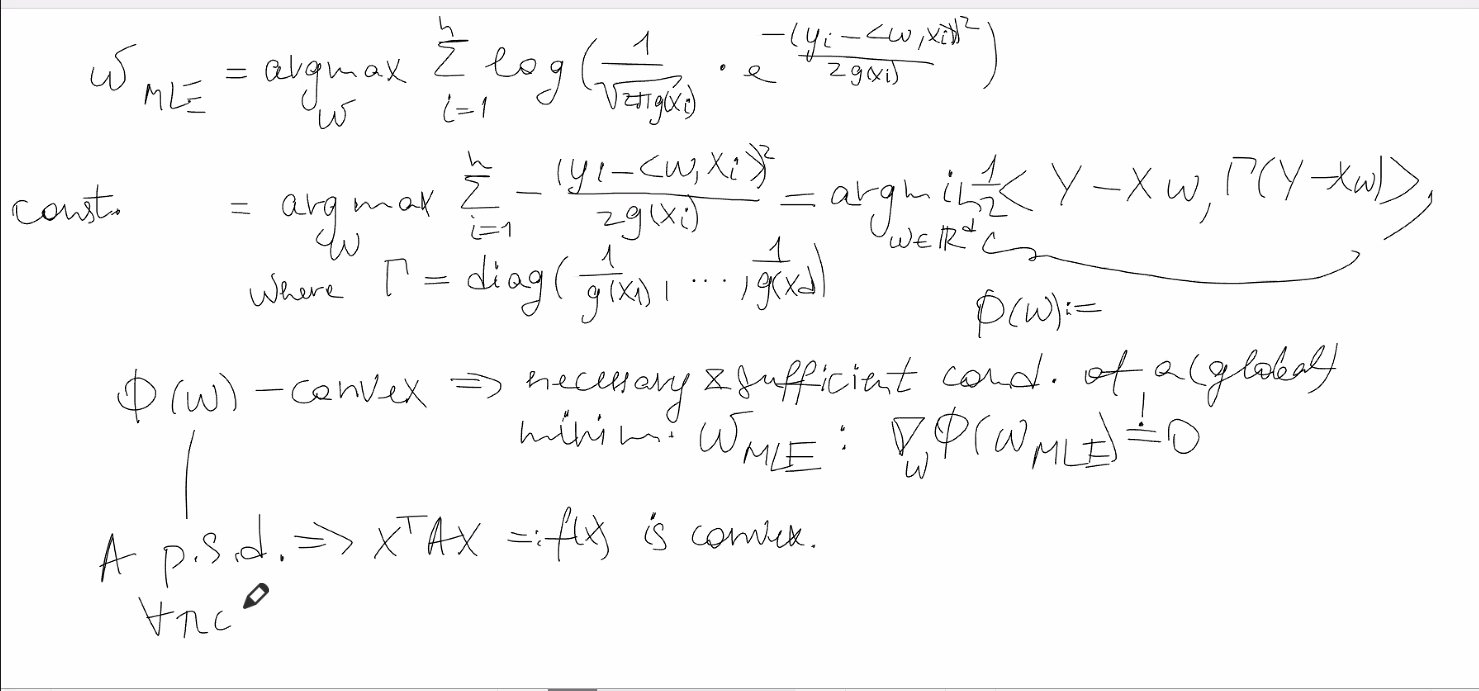 w_MLE = argmax_w Σ_{i=1}^n log( 1/√(2πg(x_i)) · e^{-(y_i-<w,x_i>)²/2g(x_i)} )
const. = argmax_w Σ_{i=1}^n - (y_i-<w,x_i>)²/2g(x_i) = argmin_{w∈ℝ^d} 1/2 < Y-Xw, Γ(Y-Xw)>,
where Γ = diag( 1/g(x_1), ..., 1/g(x_d) )
Φ(w):=
Φ(w) - convex ⇒ necessary & sufficient cond. of a (global)
minim. w_MLE : ∇_w Φ(w_MLE) =! 0
A p.s.d. ⇒ x^T A x =: f(x) is convex.